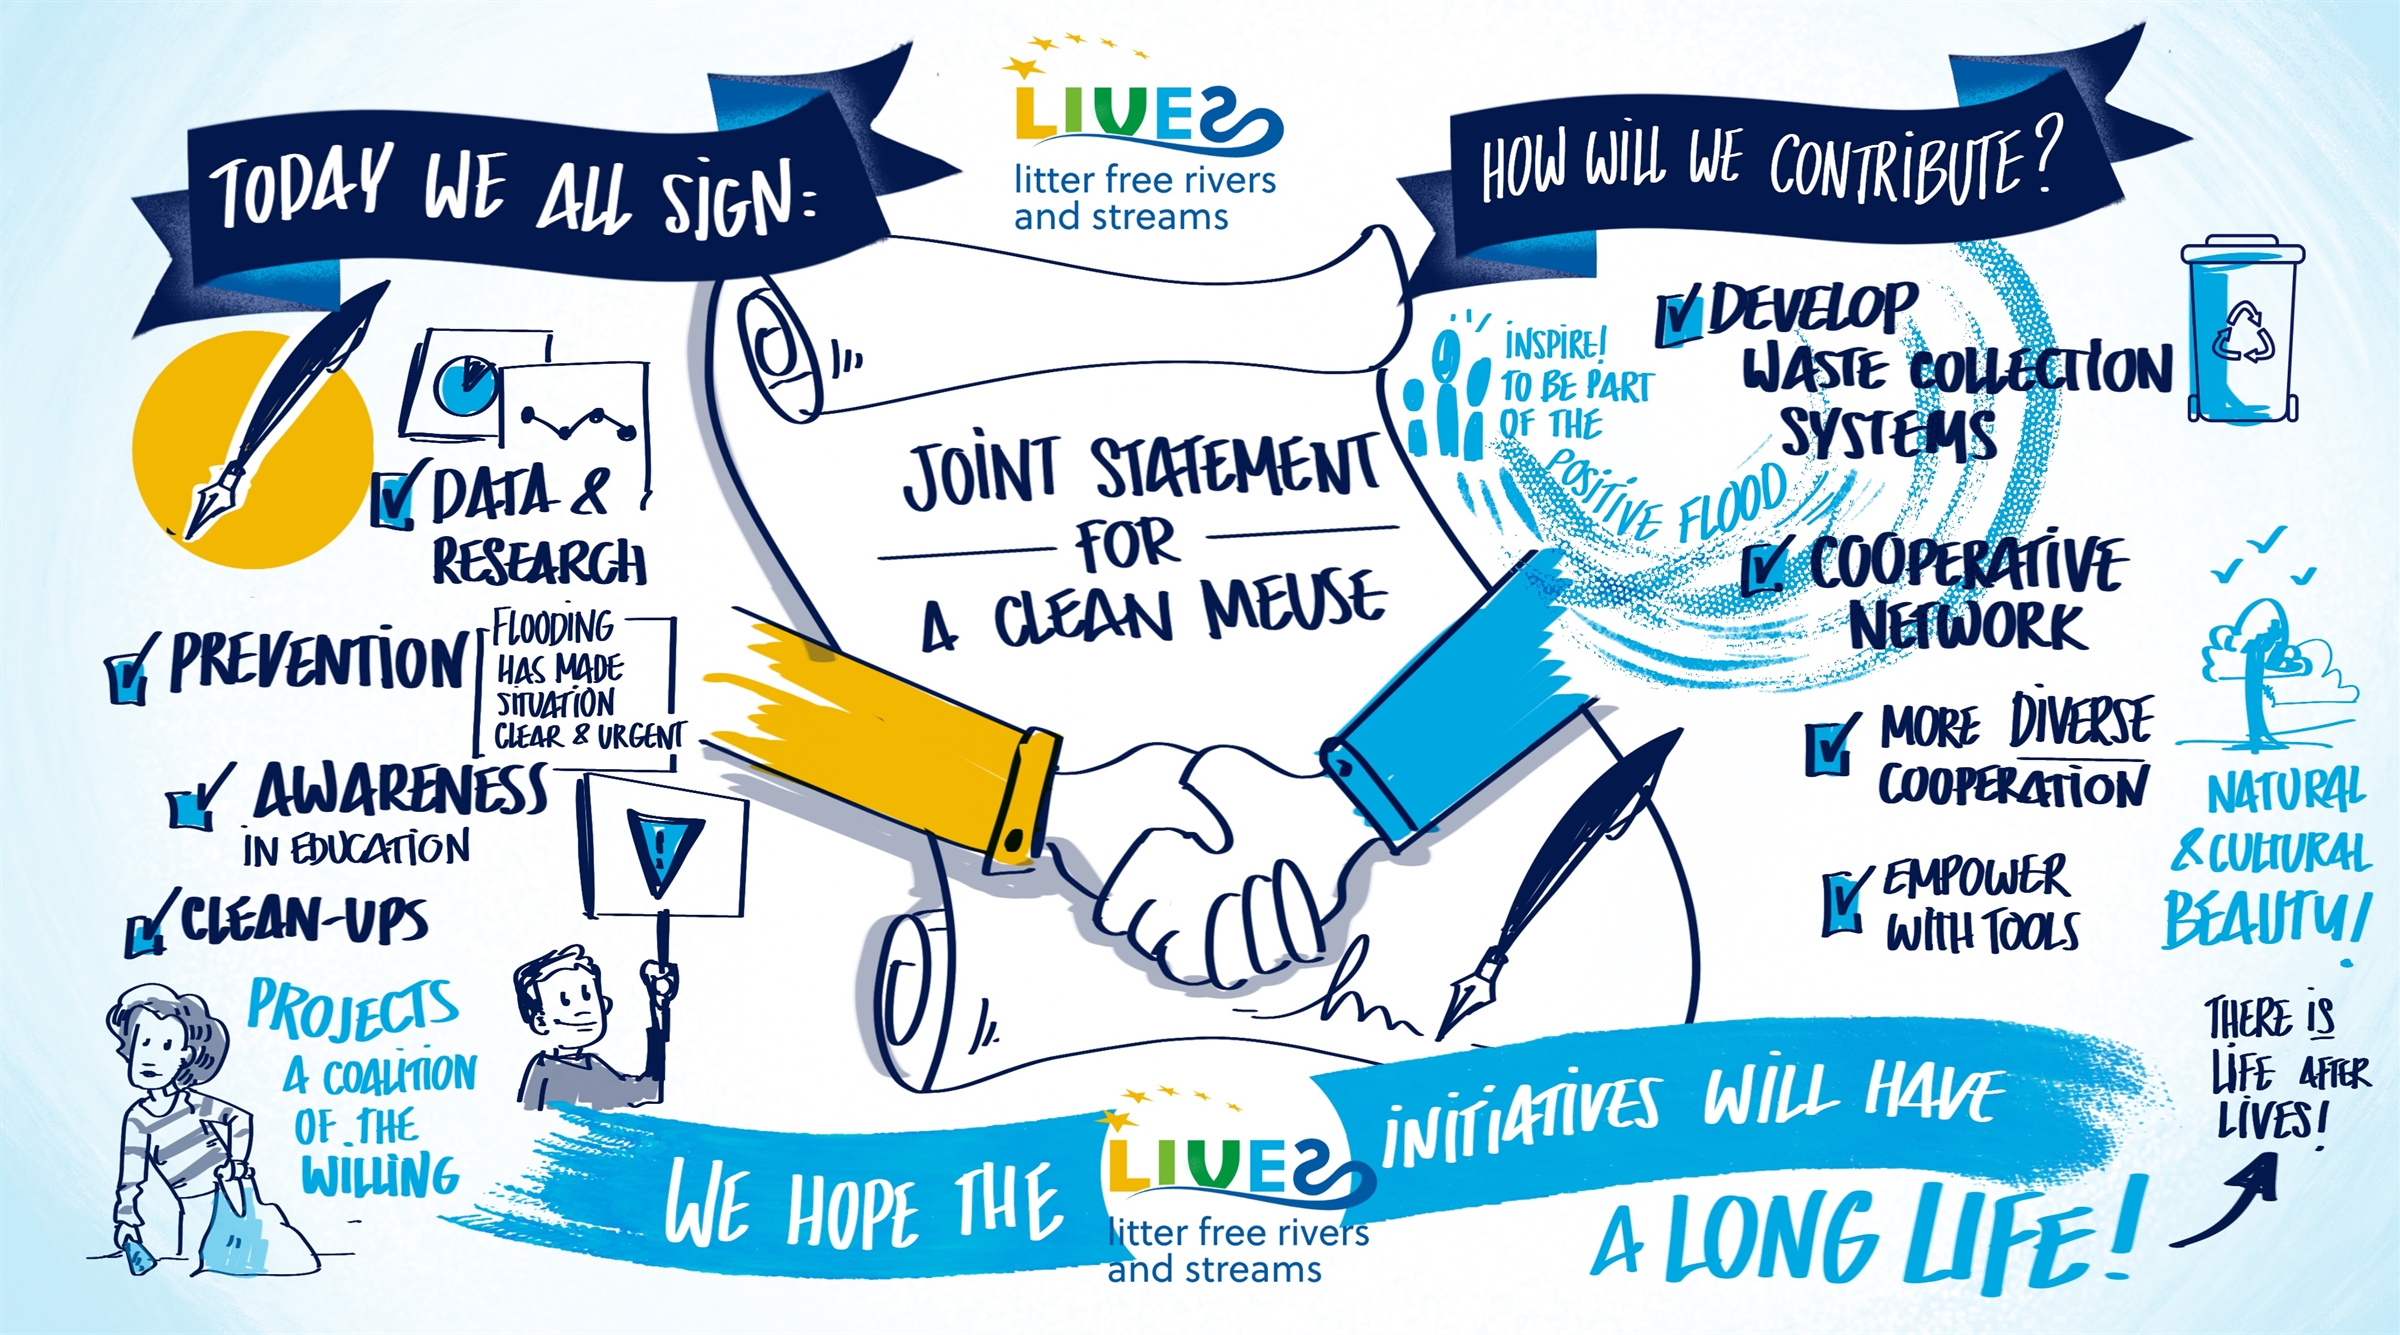 TODAY WE ALL SIGN:
LIVES
litter free rivers
and streams
HOW WILL WE CONTRIBUTE?
DATA &
RESEARCH
PREVENTION
FLOODING
HAS MADE
SITUATION
CLEAR & URGENT
AWARENESS
IN EDUCATION
CLEAN-UPS
PROJECTS
A COALITION
OF THE
WILLING
JOINT STATEMENT
FOR
A CLEAN MEUSE
INSPIRE!
TO BE PART
OF THE
POSITIVE FLOOD
DEVELOP
WASTE COLLECTION
SYSTEMS
COOPERATIVE
NETWORK
MORE DIVERSE
COOPERATION
EMPOWER
WITH TOOLS
NATURAL
& CULTURAL
BEAUTY!
THERE IS
LIFE AFTER
LIVES!
WE HOPE THE LIVES INITIATIVES WILL HAVE
litter free rivers
and streams
A LONG LIFE!